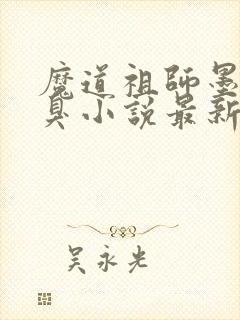 魔道祖師墨
臭小說最新
吴永光